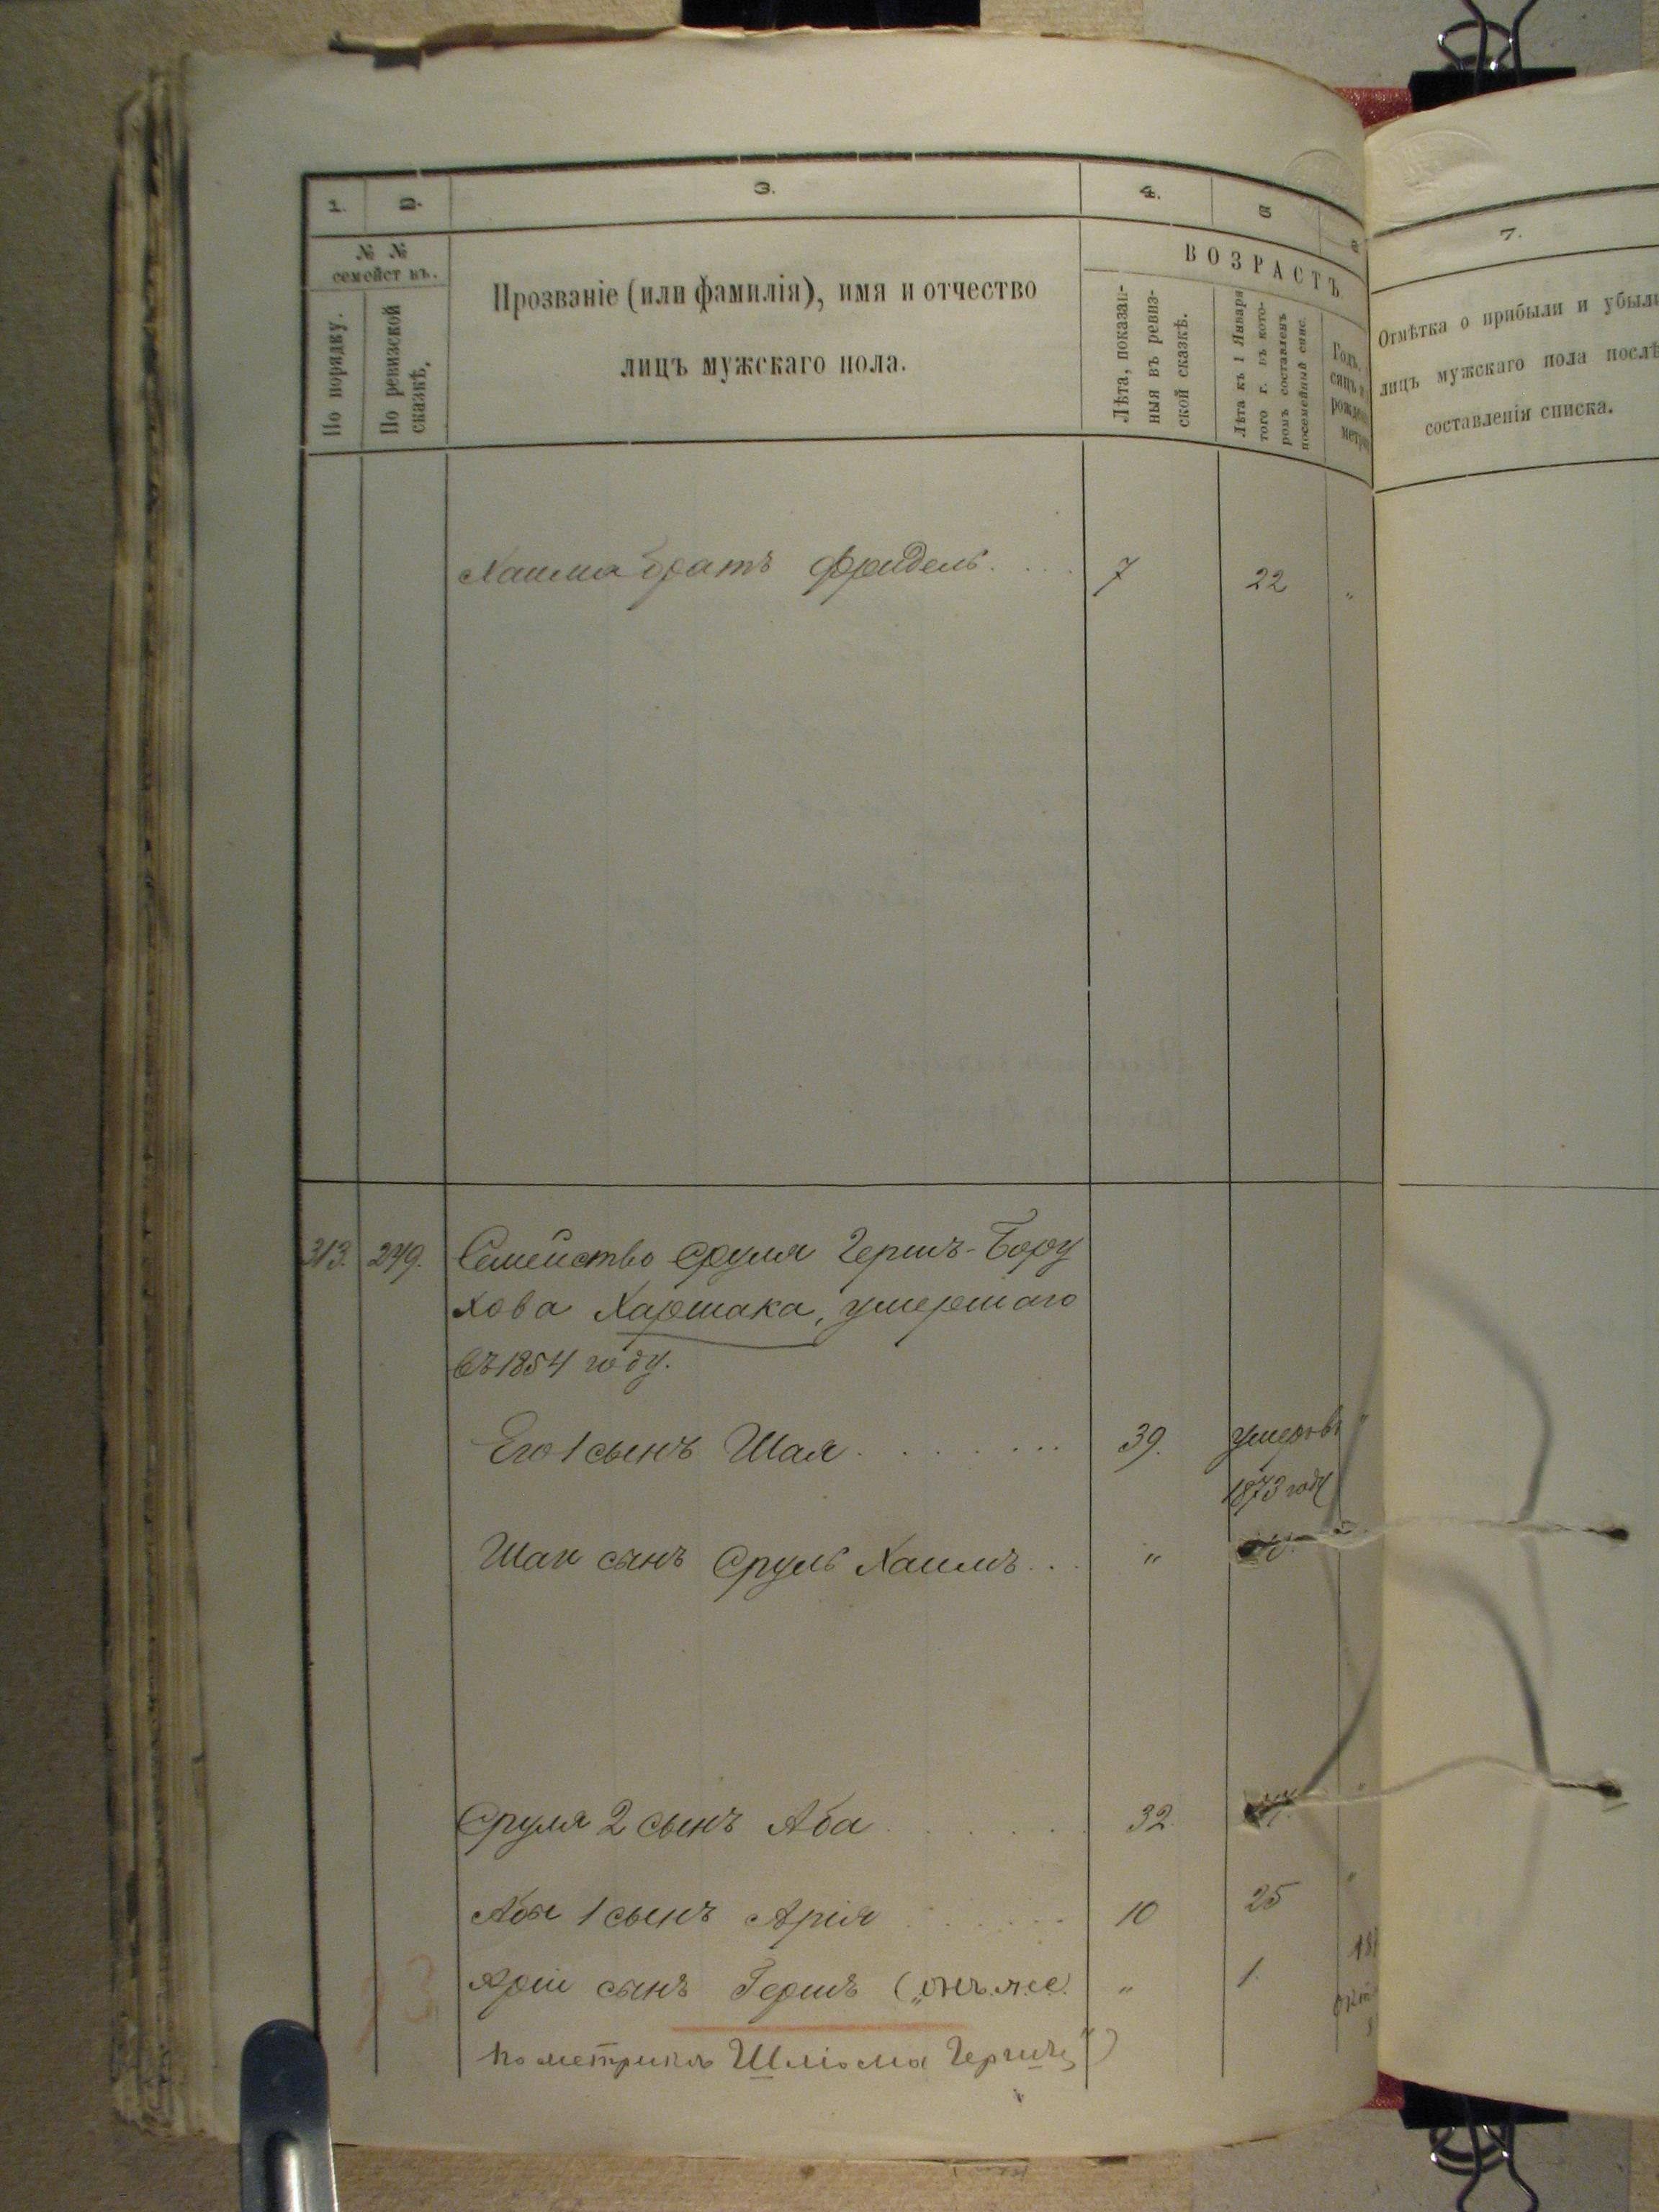 1.
2.
3.
4.
5
7.
№ №
семействъ.
По порядку.
По ревизской
сказкѣ.
Прозваніе (или фамилія), имя и отчество
лицъ мужскаго пола.
ВОЗРАСТЪ
Лѣта, показан-
ныя въ ревиз-
ской сказкѣ.
Лѣта къ 1 Января
того г. въ кото-
ромъ составленъ
посемейный спис.
Годъ,
рожден
метри
Отмѣтка о прибыли и убыли
лицъ мужскаго пола послѣ
составленія списка.
Хаима братъ Фридель.... 7 22 "
313. 249. Семейство Сруля Гершъ-Бору
хова Харшака, умершаго
въ 1854 году.
Его 1 сынъ Шая........ 39. умеръ въ "
1873 году
Шаи сынъ Сруль Хаимъ... "
Сруля 2 сынъ Аба....... 32. "
Абы 1 сынъ Арія....... 10 25 "
Арiи сынъ Гершъ („онъ же " 1.
по метрикѣ Шліома Гершъ")
13